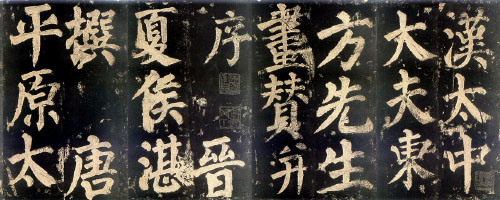 漢太中
大夫東
方先生
畫赞并
序 晉
夏侯湛
撰 唐
平原太